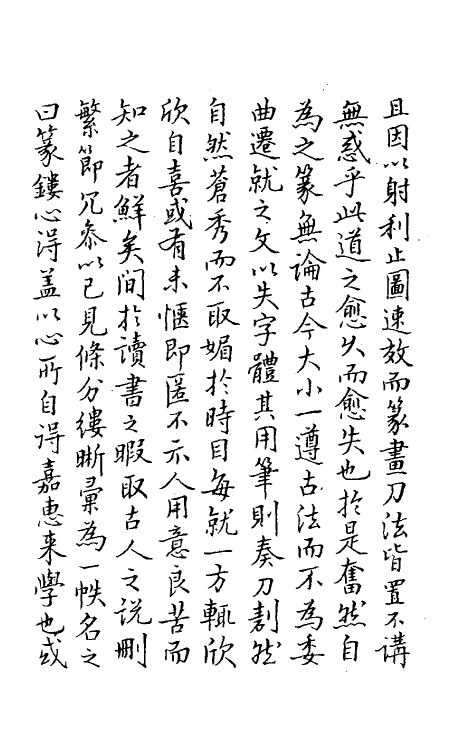 且因以射利止圖速效而篆畫刀法皆置不講
無惑乎此道之愈久而愈失也於是奮然自
為之篆無論古今大小一遵古法而不為委
曲遷就之文以失字體其用筆則奏刀劃然
自然蒼秀而不取媚於時目每就一方輒欣
欣自喜或有未愜即匿不示人用意良苦而
知之者鮮矣間於讀書之暇取古人之説刪
繁節冗叅以己見條分縷晰彚為一帙名之
曰篆鏤心得盖以心所自得嘉惠来學也或